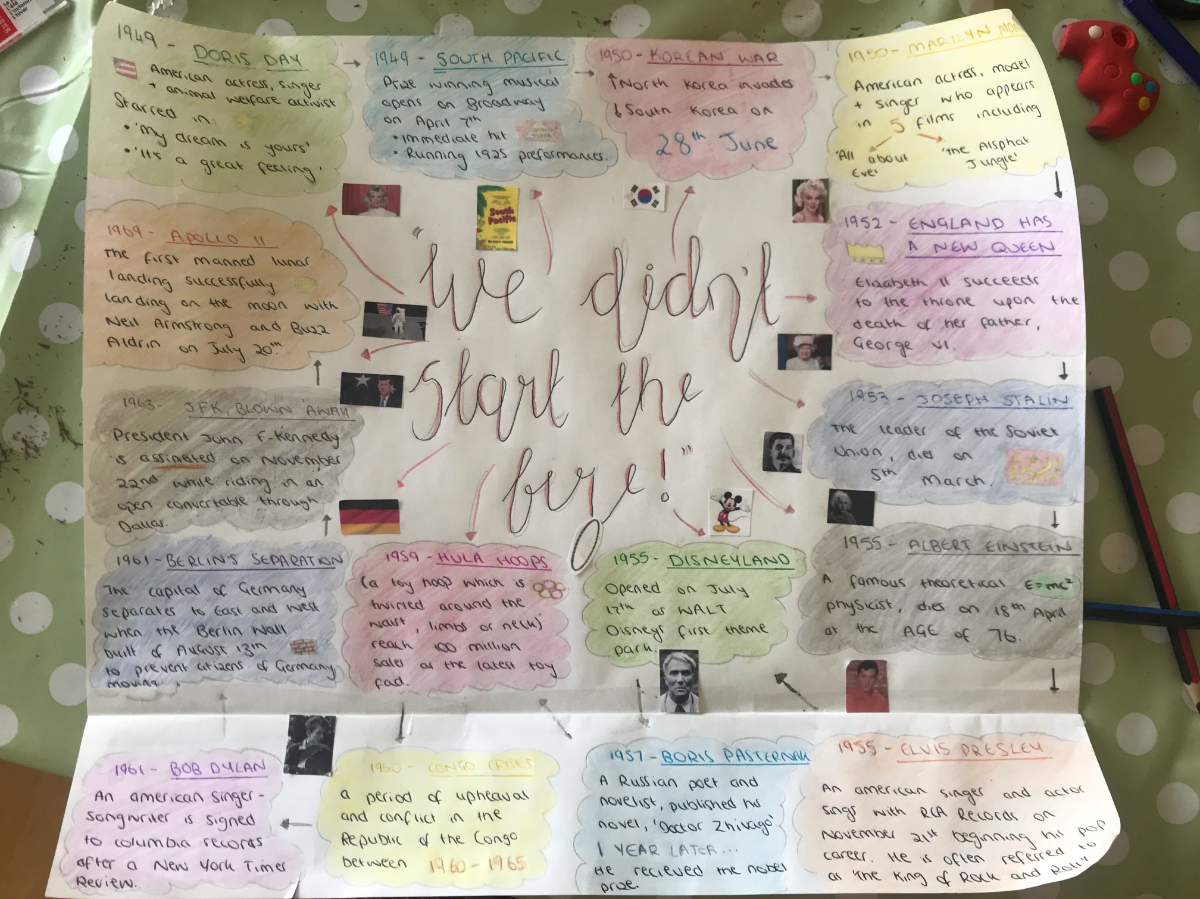 1949 - DORIS DAY
American actress, singer
+ animal welfare activist
Starred in:
• 'My dream is yours'
• 'It's a great feeling'
1949 - SOUTH PACIFIC
Prize winning musical
opens on Broadway
on April 7th
• Immediate hit
• Running 1925 preformances.
1950 - KOREAN WAR
North Korea invades
South Korea on
28th June
1950 - MARILYN MON
American actress, model
+ singer who appears
in 5 films including
'All about Eve'
'The Alsphat Jungle'
1952 - ENGLAND HAS
A NEW QUEEN
Elizabeth II succeeds
to the throne upon the
death of her father,
George VI.
1953 - JOSEPH STALIN
The leader of the Soviet
Union, dies on
5th March.
1955 - ALBERT EINSTEIN
A famous theoretical E=mc²
physicist, dies on 18th April
at the AGE of 76.
1955 - ELVIS PRESLEY
An american singer and actor
sings with RCA Records on
November 21st beginning his pop
career. He is often referred to
as 'The King of Rock and Roll'
1955 - DISNEYLAND
Opened on July
17th as WALT
Disneys first theme
park.
1957 - BORIS PASTERNAK
A Russian poet and
novelist, published his
novel, 'Doctor Zhivago'
1 YEAR LATER...
He recieved the nobel
prize.
1959 - HULA HOOPS
(a toy hoop which is
twirled around the
waist, limbs or neck)
reach 100 million
sales as the latest toy
fad.
1960 - CONGO CRISES
a period of upheaval
and conflict in the
Republic of the Congo
between 1960 - 1965
1961 - BOB DYLAN
An american singer-
songwriter is signed
to columbia records
after a New York Times
Review.
1961 - BERLIN'S SEPARATION
The capital of Germany
separates to East and West
when the Berlin Wall
built of August 13th
to prevent citizens of Germany
moving.
1963 - JFK, BLOWN AWAY
President John F-Kennedy
is assinated on November
22nd while riding in an
open convertable through
Dallas.
1969 - APOLLO 11
The first manned lunar
landing successfully
landing on the moon with
Neil Armstrong and Buzz
Aldrin on July 20th.
"We didn't
start the
fire!"
South
Pacific